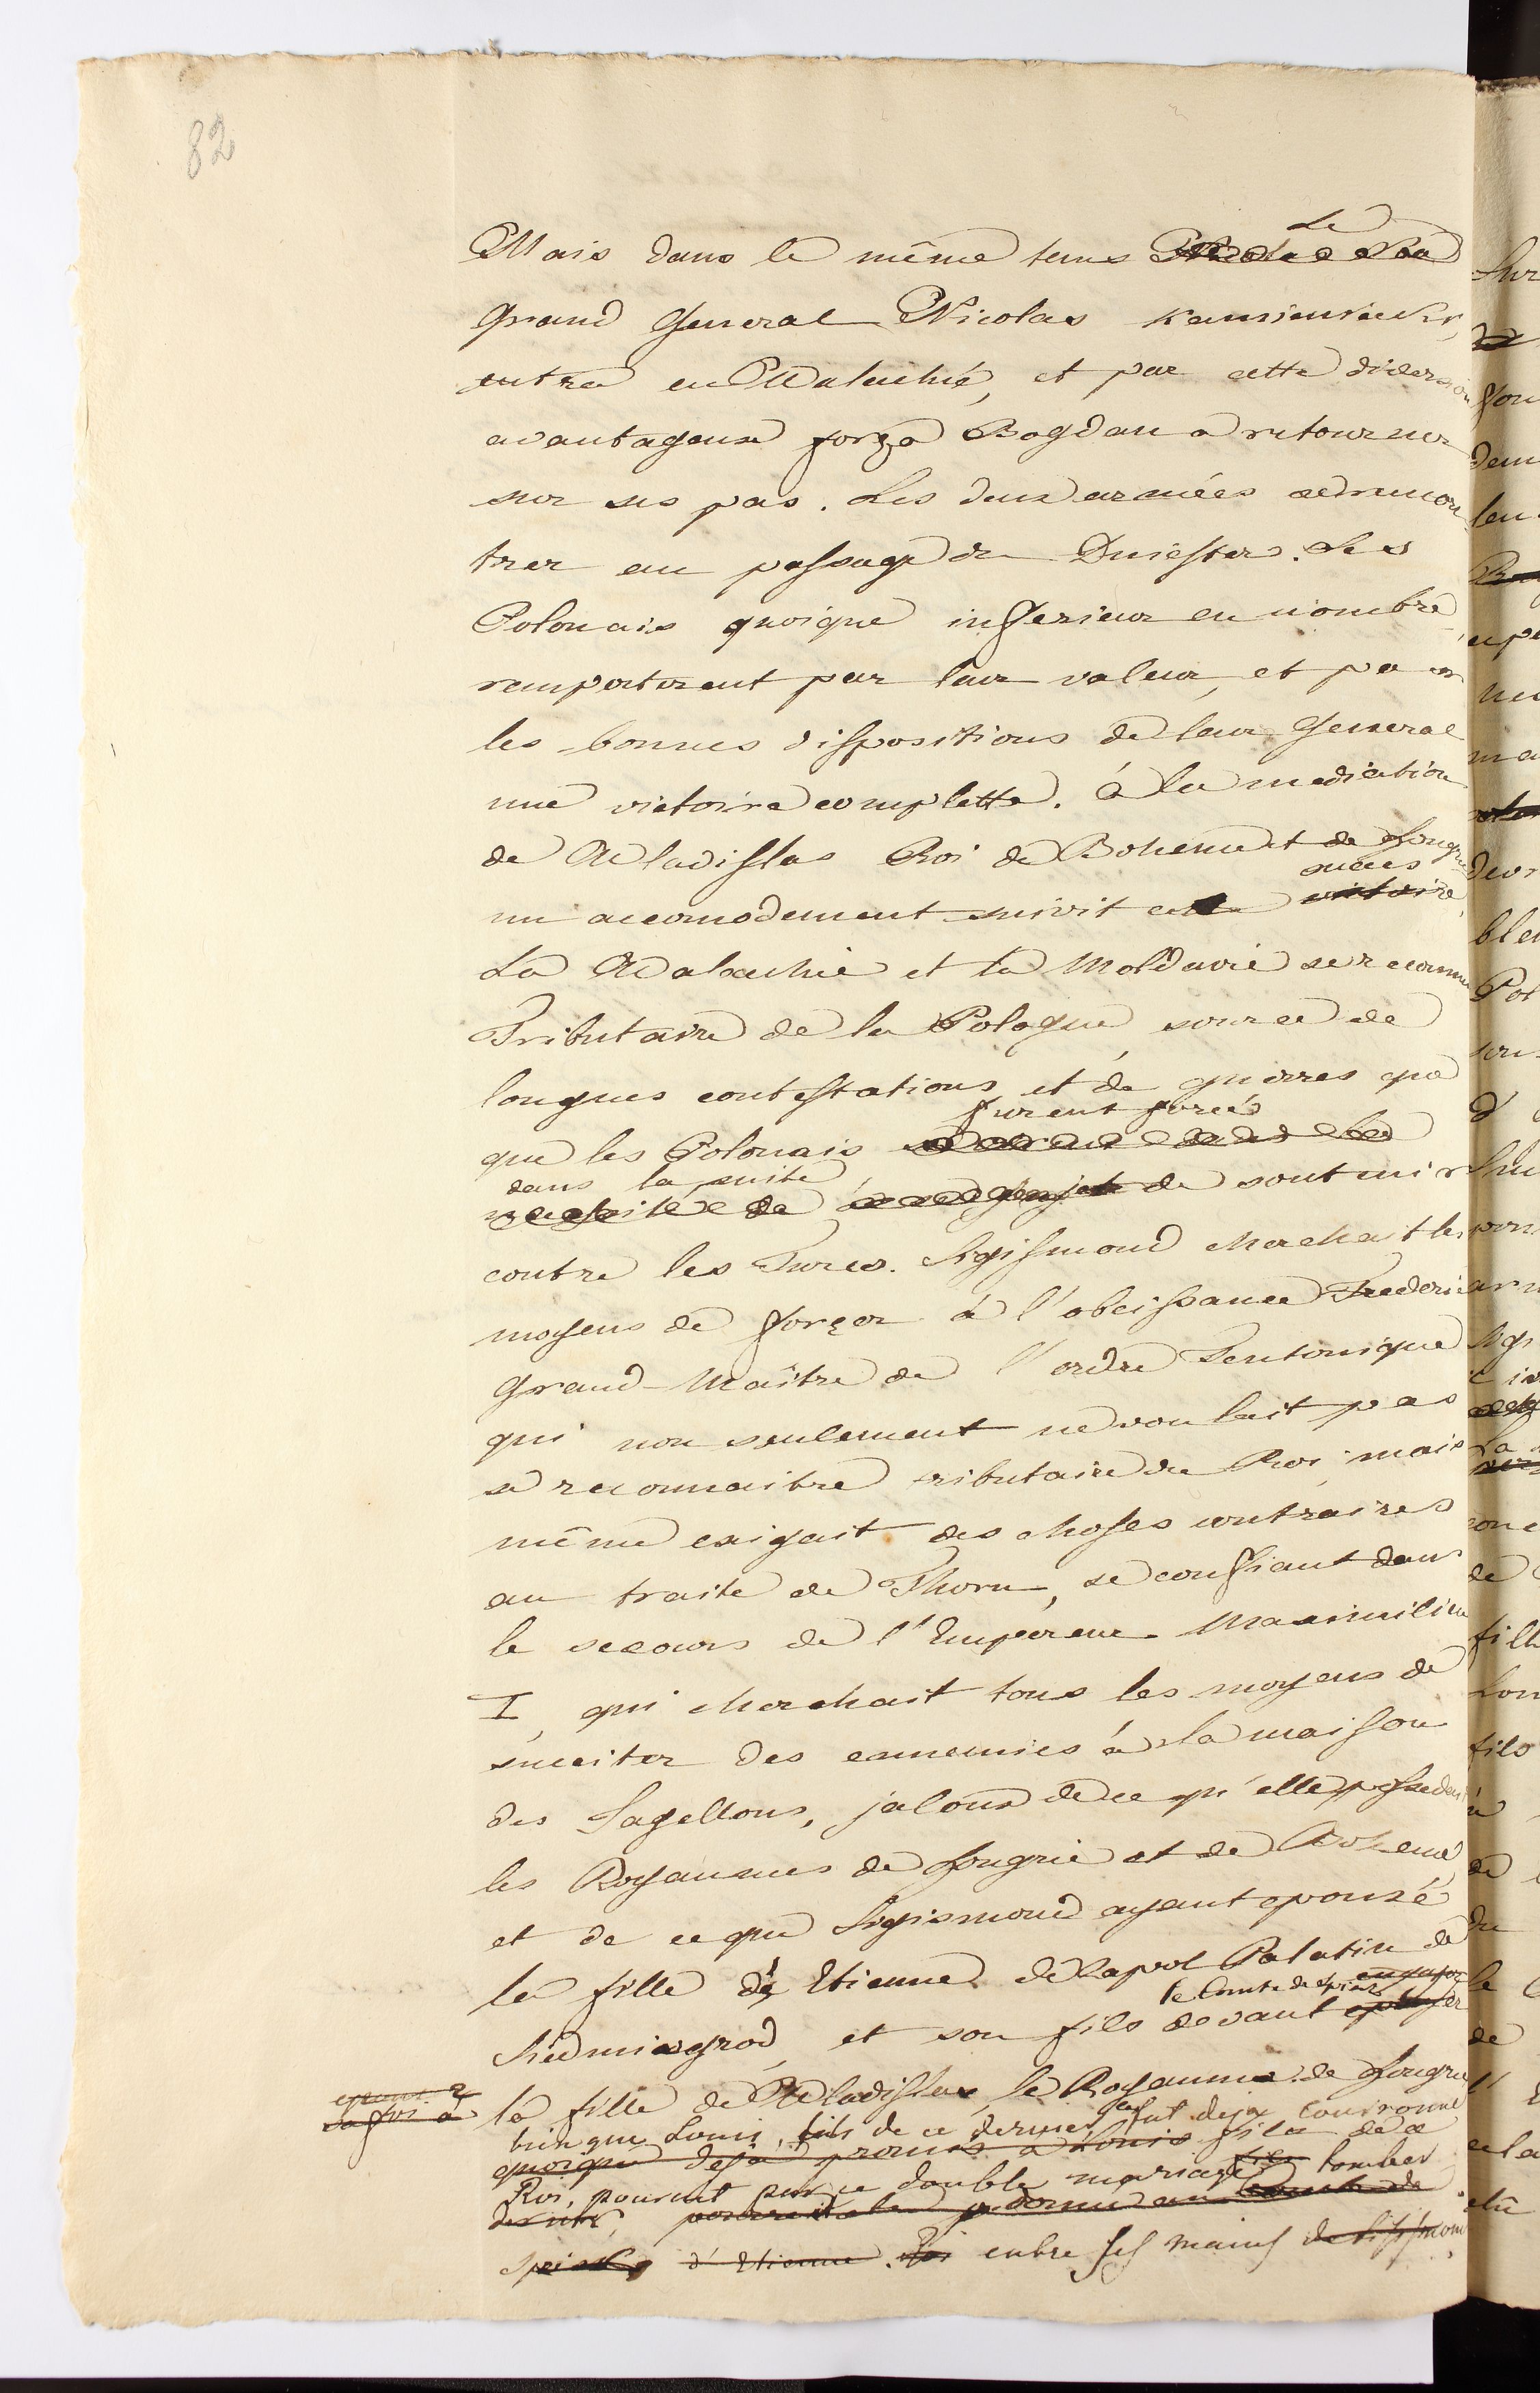 82
Le
Mais dans le même tems
grand General Nicolas Kamieniecki,
entra en Walachie, et par cette diversion
avantageuse força Bogdan a retourner
sur ses pas. Les deux armées se rencon-
trer au passage du Dniester. Les
Polonais quoique inferieur en nombre
remporterent par leur valeur, et par
les bonnes dispositions de leur General
une victoire complette. à la mediation
de Wladislas Roi de Boheme et de Hongrie
succes
un accomodement suivit cette victoire,
La Walachie et la Moldavie se reconnu
Tributaire de la Pologne, source de
longues contestations et de guerres que
furent forcés
que les Polonais
dans la suite
de soutenir
contre les Turcs. Sigismond cherchait les
moyens de forçer à l'obeissance Frederic
grand-Maître de l'ordre Teutonique
qui non seulement ne voulait pas
se reconnaitre tributaire du Roi, mais
même exigait des choses contraires
au traite de Thorn, se confiant dans
le secours de l'Empereur Maximilien
I, qui cherchait tous les moyens de
susciter des ennemies à la maison
des Jagellons, jaloux de ce qu'elle possedait
les Royaumes de Hongrie et de Boheme,
et de ce que Sigismond ayant epousé
la fille d'Etienne de Zapol Palatin de
le Comte de Spiz
Siedmiogrod, et son fils devant epouser
sa foi à
la fille de Wladislas, le Royaume de Hongrie
bien que Louis, fils de ce dernier fut deja couronné
quoique deja promis a Louis fils de ce
Roi, pouvait par ce double mariage tomber
dernier,
d'Etienne. entre ses mains de Sigismond